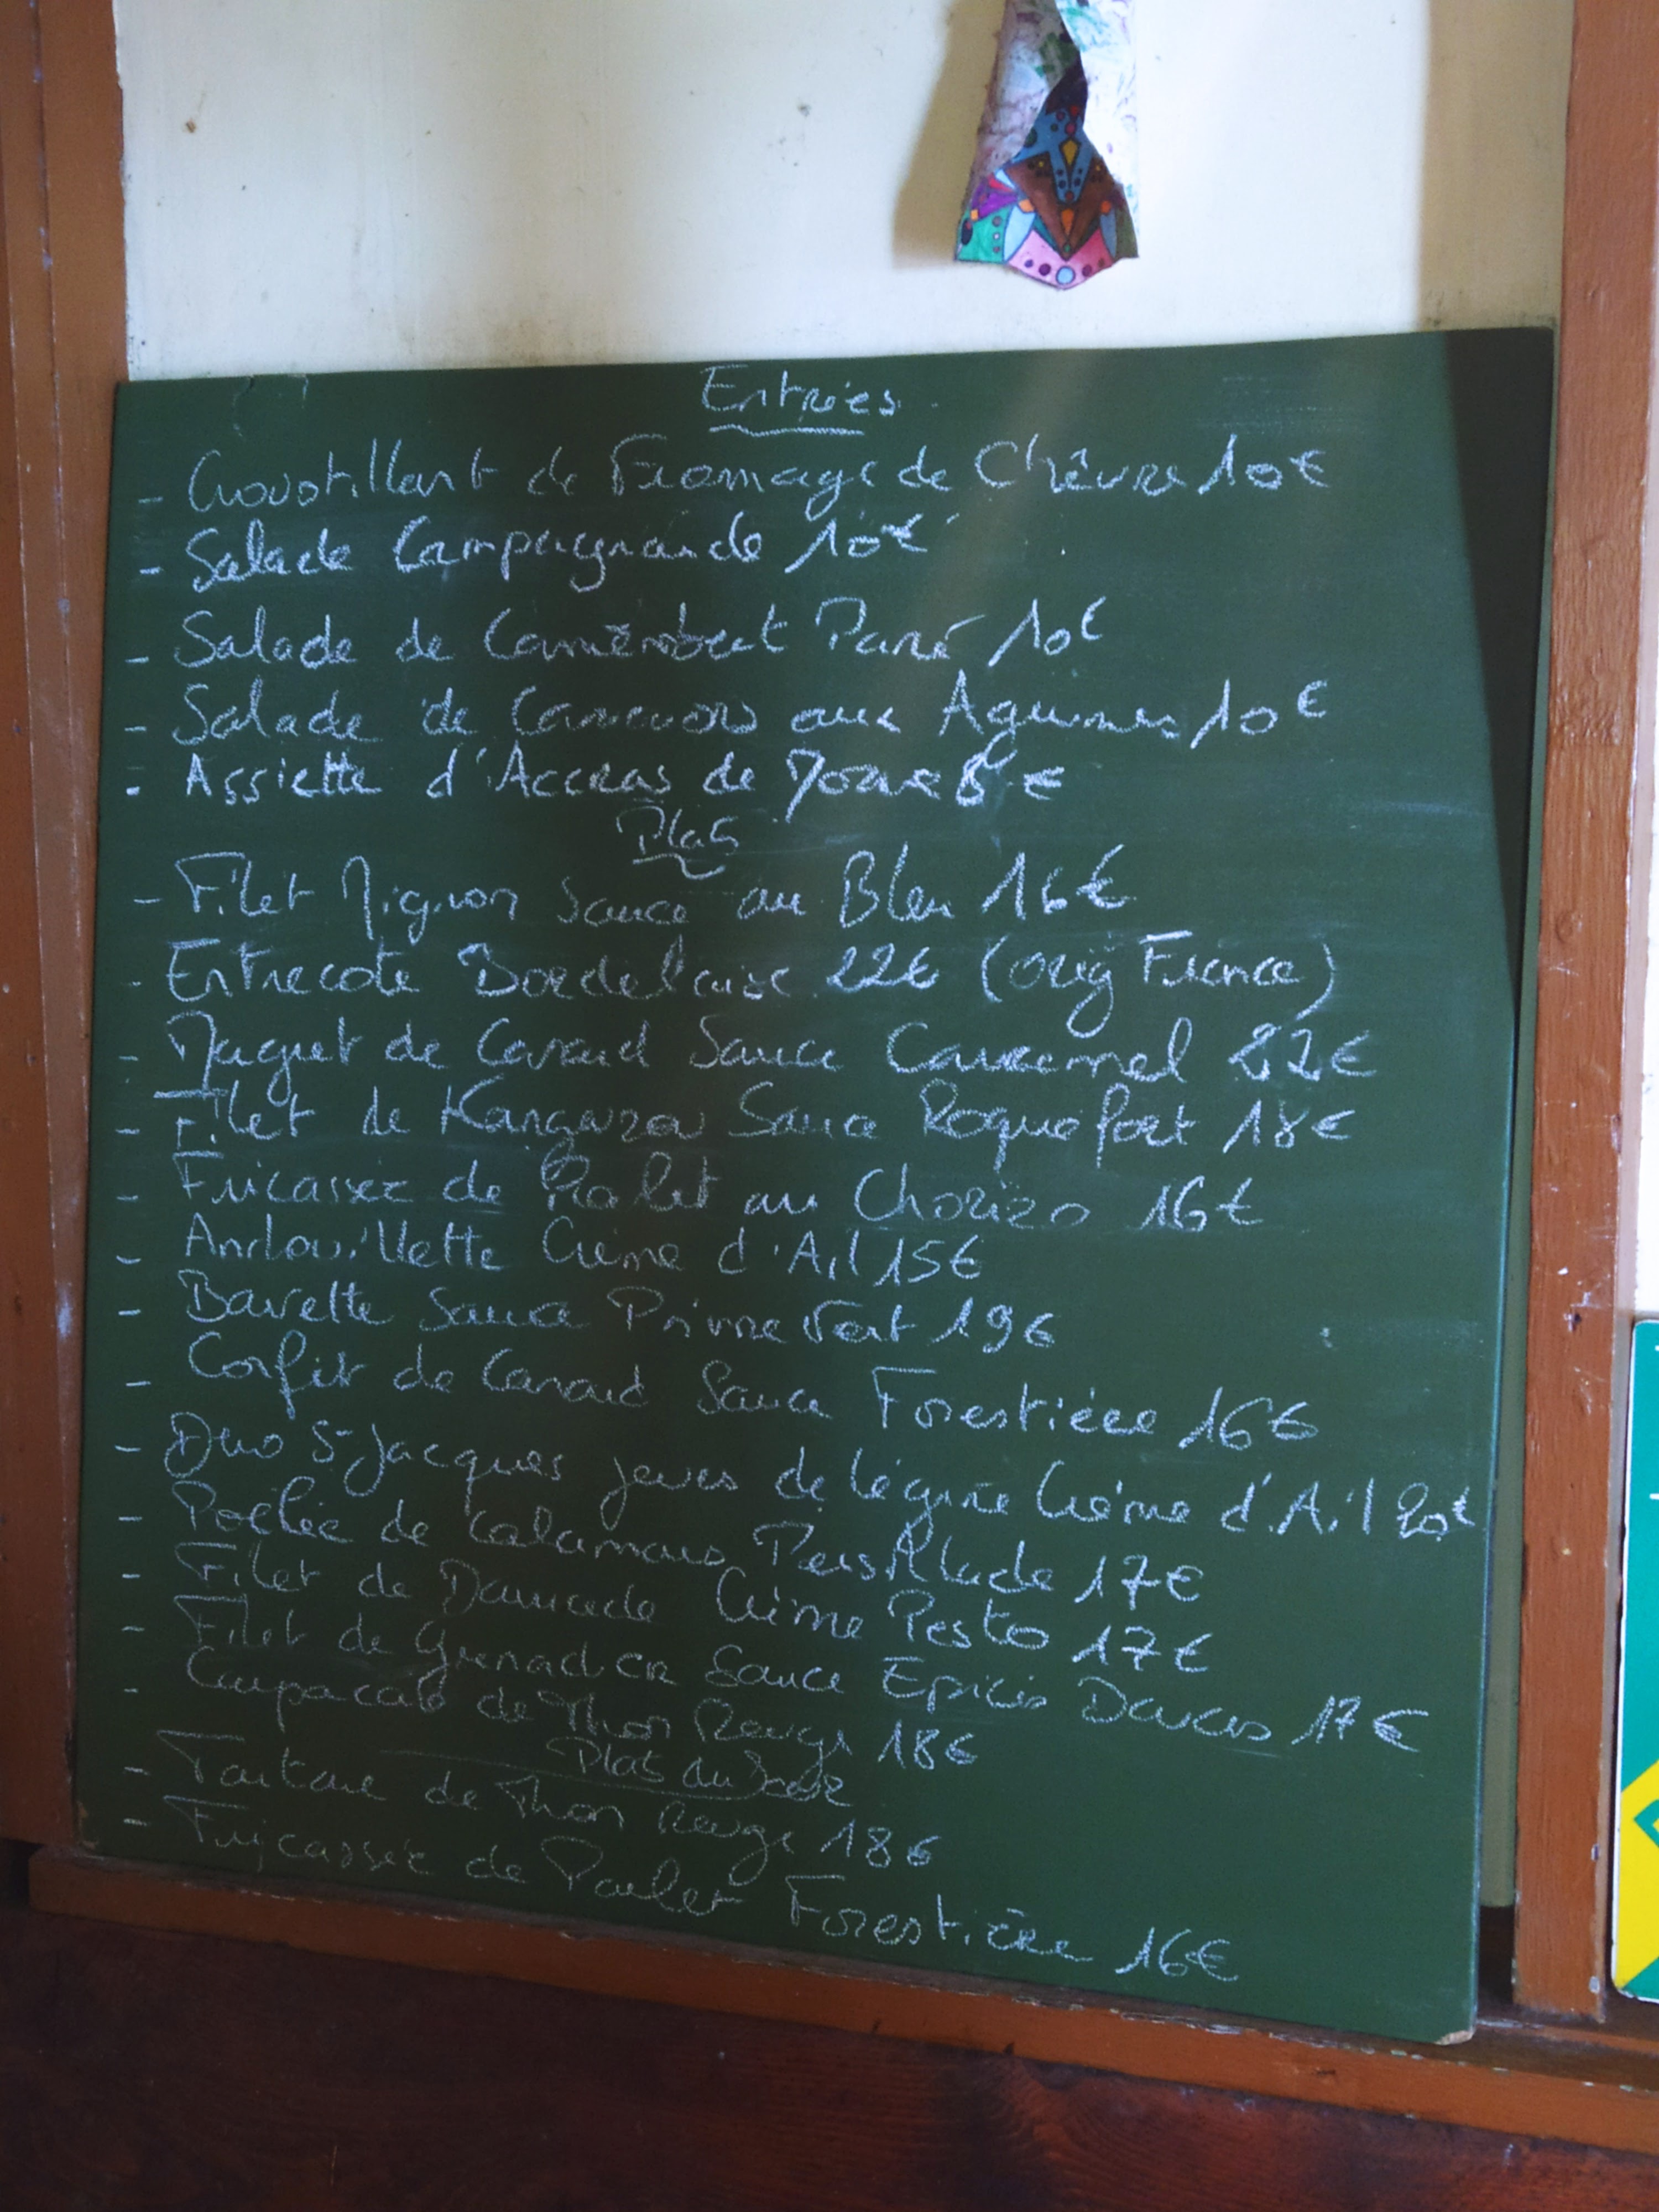 Entrées
- Croustillant de Fromage de Chèvre 10€
- Salade Campagnarde 10€
- Salade de Camembert Pané 10€
- Salade de Camarons aux Agrumes 10€
- Assiette d'Accras de Morue 8€
Plats
- Filet Mignon Sauce au Bleu 16€
- Entrecote Bordelaise 22€ (orig France)
- Magret de Canard Sauce Caramel 22€
- Filet de Kangourou Sauce Roquefort 18€
- Fricassée de Poulet au Chorizo 16€
- Andouillette Crème d'Ail 15€
- Bavette Sauce Poivre Vert 19€
- Confit de Canard Sauce Forestière 16€
- Duo St Jacques joues de légine Crème d'Ail 20€
- Poêlée de Calamars Persillade 17€
- Filet de Daurade Crème Pesto 17€
- Filet de Grenadier Sauce Epices Douces 17€
- Carpaccio de Thon Rouge 18€
Plats du Jour
- Tartare de Thon Rouge 18€
- Fricassée de Poulet Forestière 16€